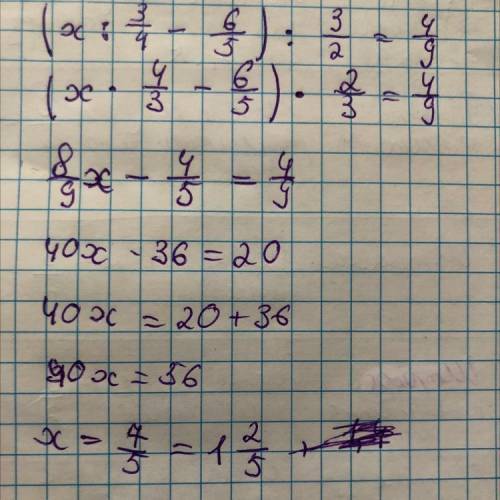 (x : 3/4 - 6/5) : 3/2 = 4/9
(x · 4/3 - 6/5) · 2/3 = 4/9
8/9 x - 4/5 = 4/9
40x - 36 = 20
40x = 20 + 36
40x = 56
x = 7/5 = 1 2/5